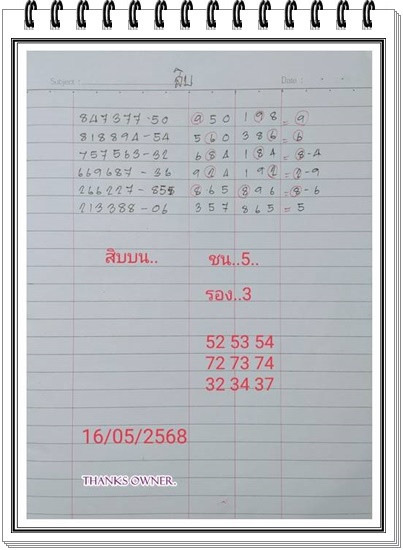 Subject : สิบ Date :
847377-50 950 198 = 9
818894-54 560 386 = 6
757563-32 684 184 = 8-4
669687-36 924 192 = 2-9
266227-85 865 896 = 8-6
213388-06 357 865 = 5
สิบบน.. ชน..5..
รอง..3
52 53 54
72 73 74
32 34 37
16/05/2568
THANKS OWNER.